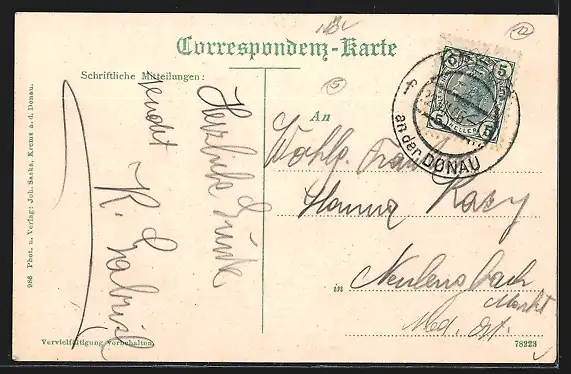 Correspondenz-Karte
Schriftliche Mitteilungen:
Herzliche Grüße
sendet
K. Gabriel
An
Wohlg. Frau
Hanna
in Neulengbach
Markt
Ned. Öst.
5 5
5 5
HELLER
an der DONAU
986 Phot. u. Verlag: Joh. Saska, Krems a. d. Donau.
Vervielfältigung vorbehalten.
78223